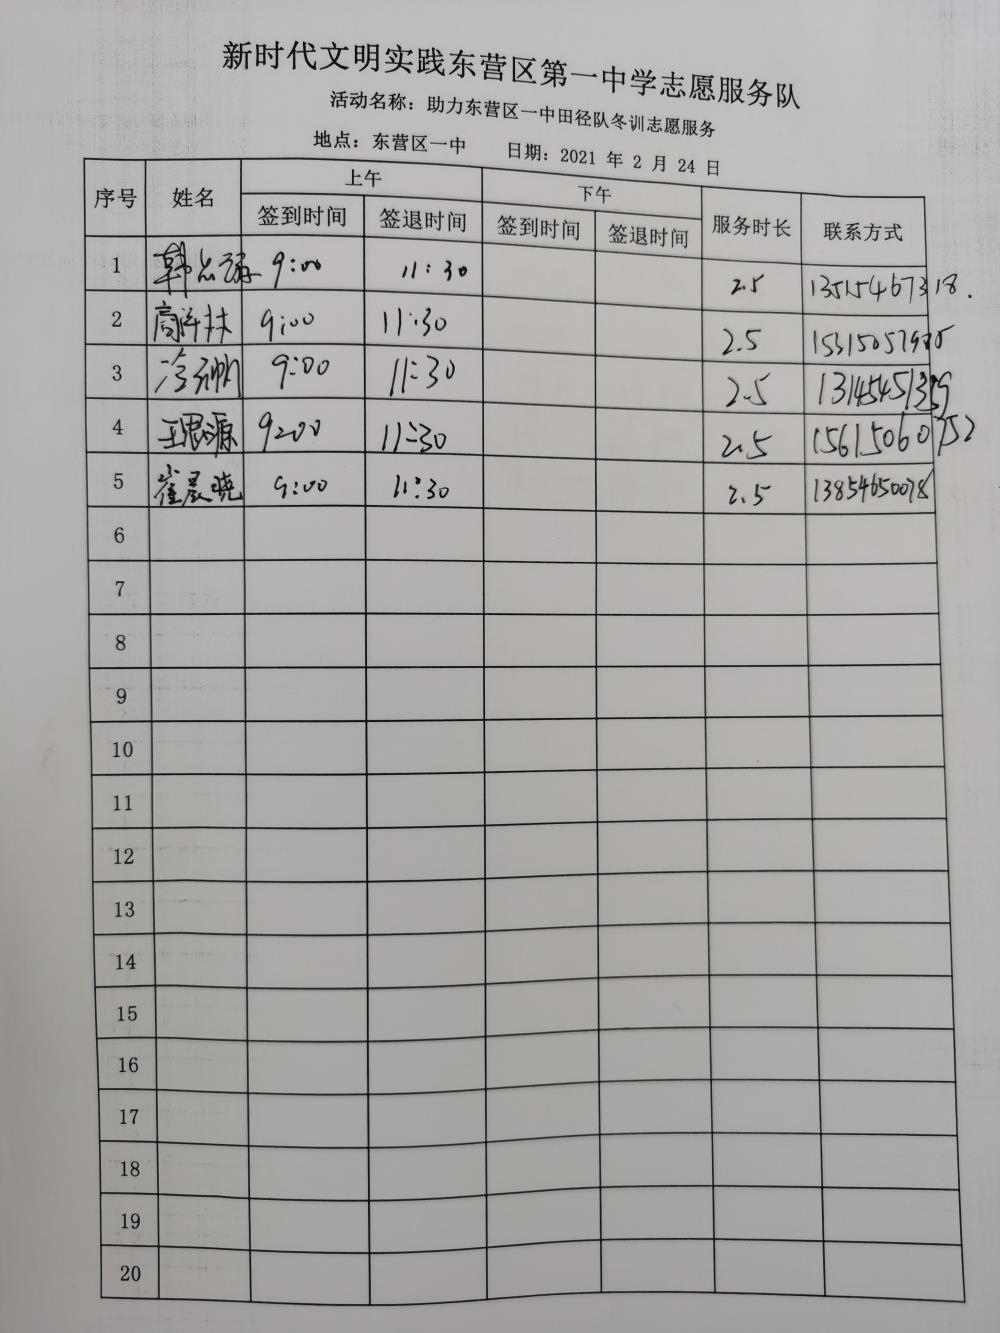 新时代文明实践东营区第一中学志愿服务队
活动名称：助力东营区一中田径队冬训志愿服务
地点：东营区一中 日期：2021 年 2 月 24 日
序号 姓名 上午 下午 服务时长 联系方式
签到时间 签退时间 签到时间 签退时间
1 韩 9:00 11:30 2.5 13515467318.
2 高 林 9:00 11:30 2.5
3 冷 帆 9:00 11:30 2.5
4 王思源 9:00 11:30 2.5 15615060752
5 崔晨晓 9:00 11:30 2.5 13854650078
6
7
8
9
10
11
12
13
14
15
16
17
18
19
20